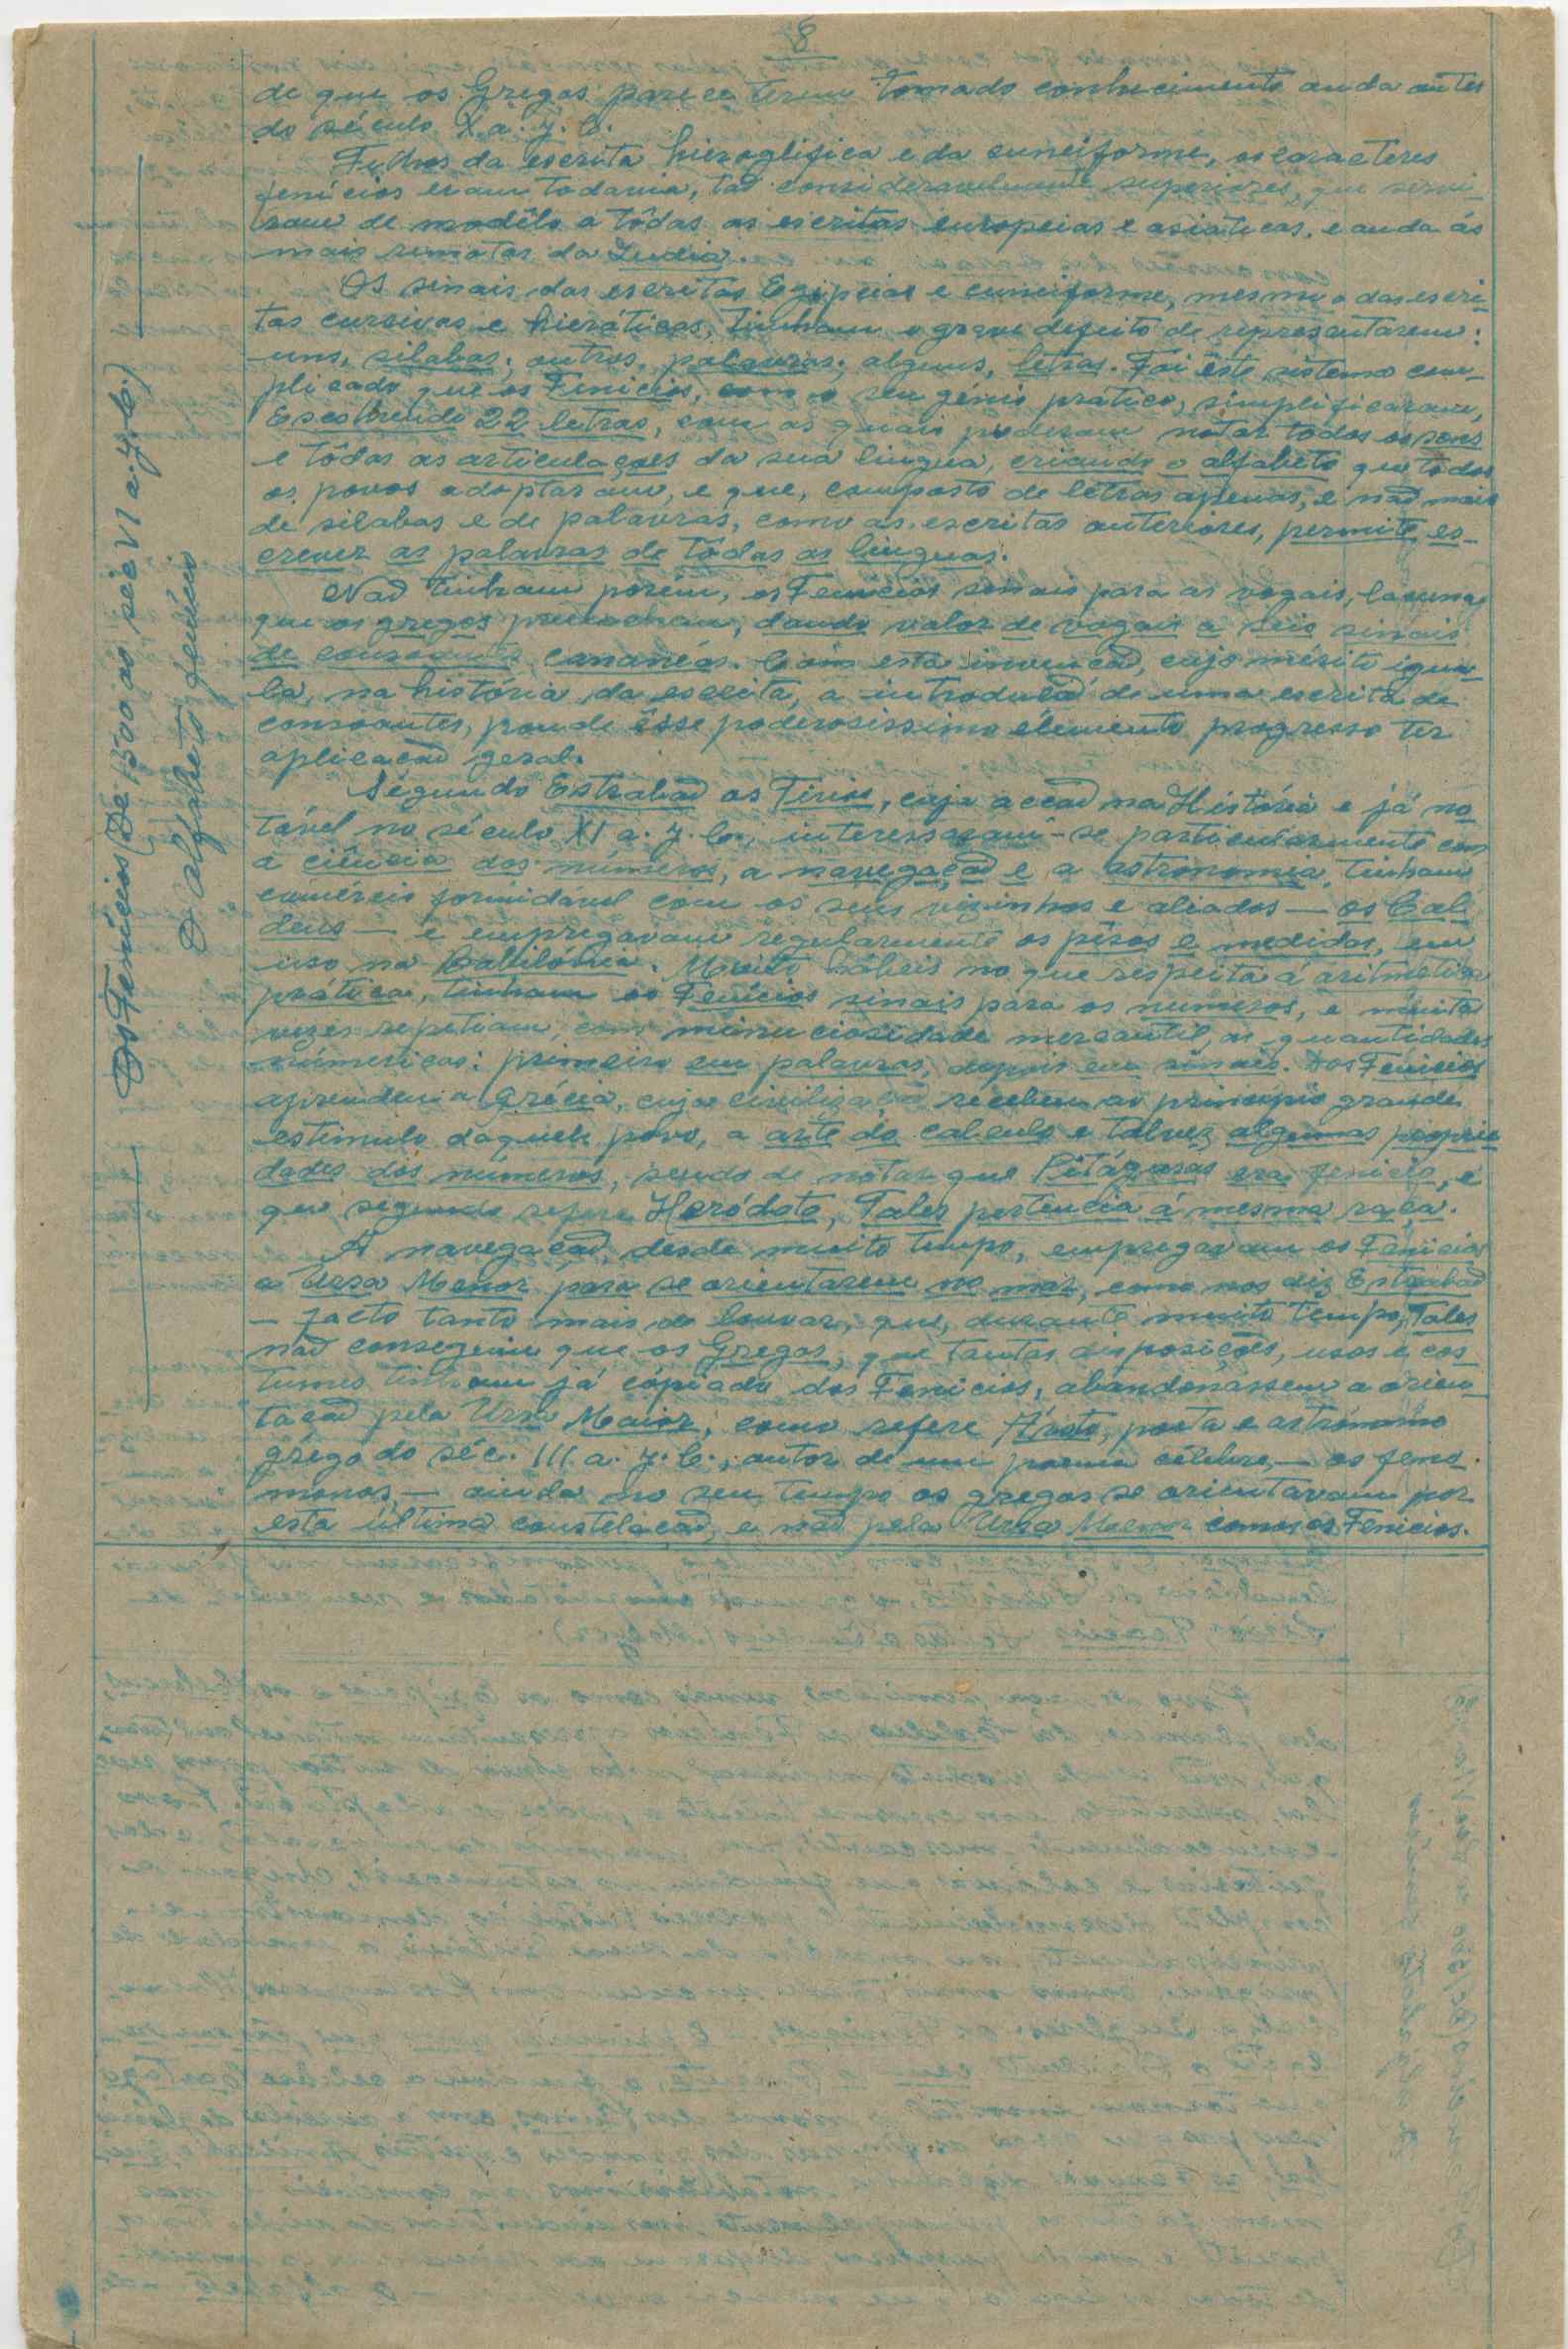 8
de que os Gregos parece terem tomado conhecimento anda antes
do século X a. J. C.
Filhos da escrita hieroglifica e da cuneiforme, os caracteres
fenícios eram todavia, taõ consideravelmente superiores, que servi-
ram de modêlo a tôdas as escritas europeias e asiaticas, e anda ás
mais remotas da India.
Os sinais das escritas Egipcias e cuneiforme, mesmo o das escri-
tas cursivas e hieráticas, tinham o grave defeito de representarem:
uns, silabas; outros, palavras; alguns, letras. Foi êste sistema com-
plicado que os Fenicios, com o seu génio prático, simplificaram,
Escolhendo 22 letras, com as quais puderam notar todos os sons
e tôdas as articulações da sua lingua, criando o alfabeto que todos
os povos adoptaram, e que, composto de letras apenas, e naõ mais
de silabas e de palavras, como as escritas anteriores, permite es-
crever as palavras de tôdas as linguas.
Naõ tinham porém, os Fenicios sinais para as vogais, lacuna
que os gregos preencheram, dando valor de vogais a seis sinais
de consoantes cananéas. Com esta invençaõ, cujo mérito igua-
la, na história da escrita, a introduçaõ de uma escrita de
consoantes, poude êsse poderosissimo elemento progresso ter
aplicaçaõ geral.
Segundo Estrabaõ os Tirios, cuja acçaõ na História e já no-
tável no século XI a. J. C., interessaram-se particularmente com
a ciência dos números, a navegaçaõ e a astronomia, tinham
comércio formidável com os seus vizinhos e aliados — os Cal-
deus — e empregavam regularmente os pêsos e medidas, em
uso na Babilónia. Muito hábeis no que respeita á aritmetica
prática, tinham os Fenicios sinais para os numeros, e muitas
vezes repetiam, com minuciosidade mercantil, as quantidades
númericas: primeiro em palavras, depois em sinais. Dos Fenicios
aprendeu a Grécia, cuja civilizaçaõ recebeu ao principio grande
estimulo daquele povo, a arte do calculo e talvez algumas proprie-
dades dos números, sendo de notar que Pitágoras era fenicio, e
que segundo refere Heródoto, Tales pertencia á mesma raça.
Á navegaçaõ, desde muito tempo, empregavam os Fenicios
a Ursa Menor para se orientarem no mar, como nos diz Estrabaõ
— facto tanto mais de louvar, que, durante muito tempo, Tales
naõ conseguiu que os Gregos, que tantas disposições, usos e cos-
tumes tinham já copiado dos Fenicios, abandonássem a orien-
taçaõ pela Ursa Maior, como refere Árato, poeta e astrónomo
grego do séc. III. a. J. C., autor de um poema célebre, — os feno-
menos, — ainda no seu tempo os gregos se orientavam por
esta última constelaçaõ, e naõ pela Ursa Menor como os Fenicios.
Os Fenícios (De 1500 ao séc VI a. J. C.)
O alfabeto fenício